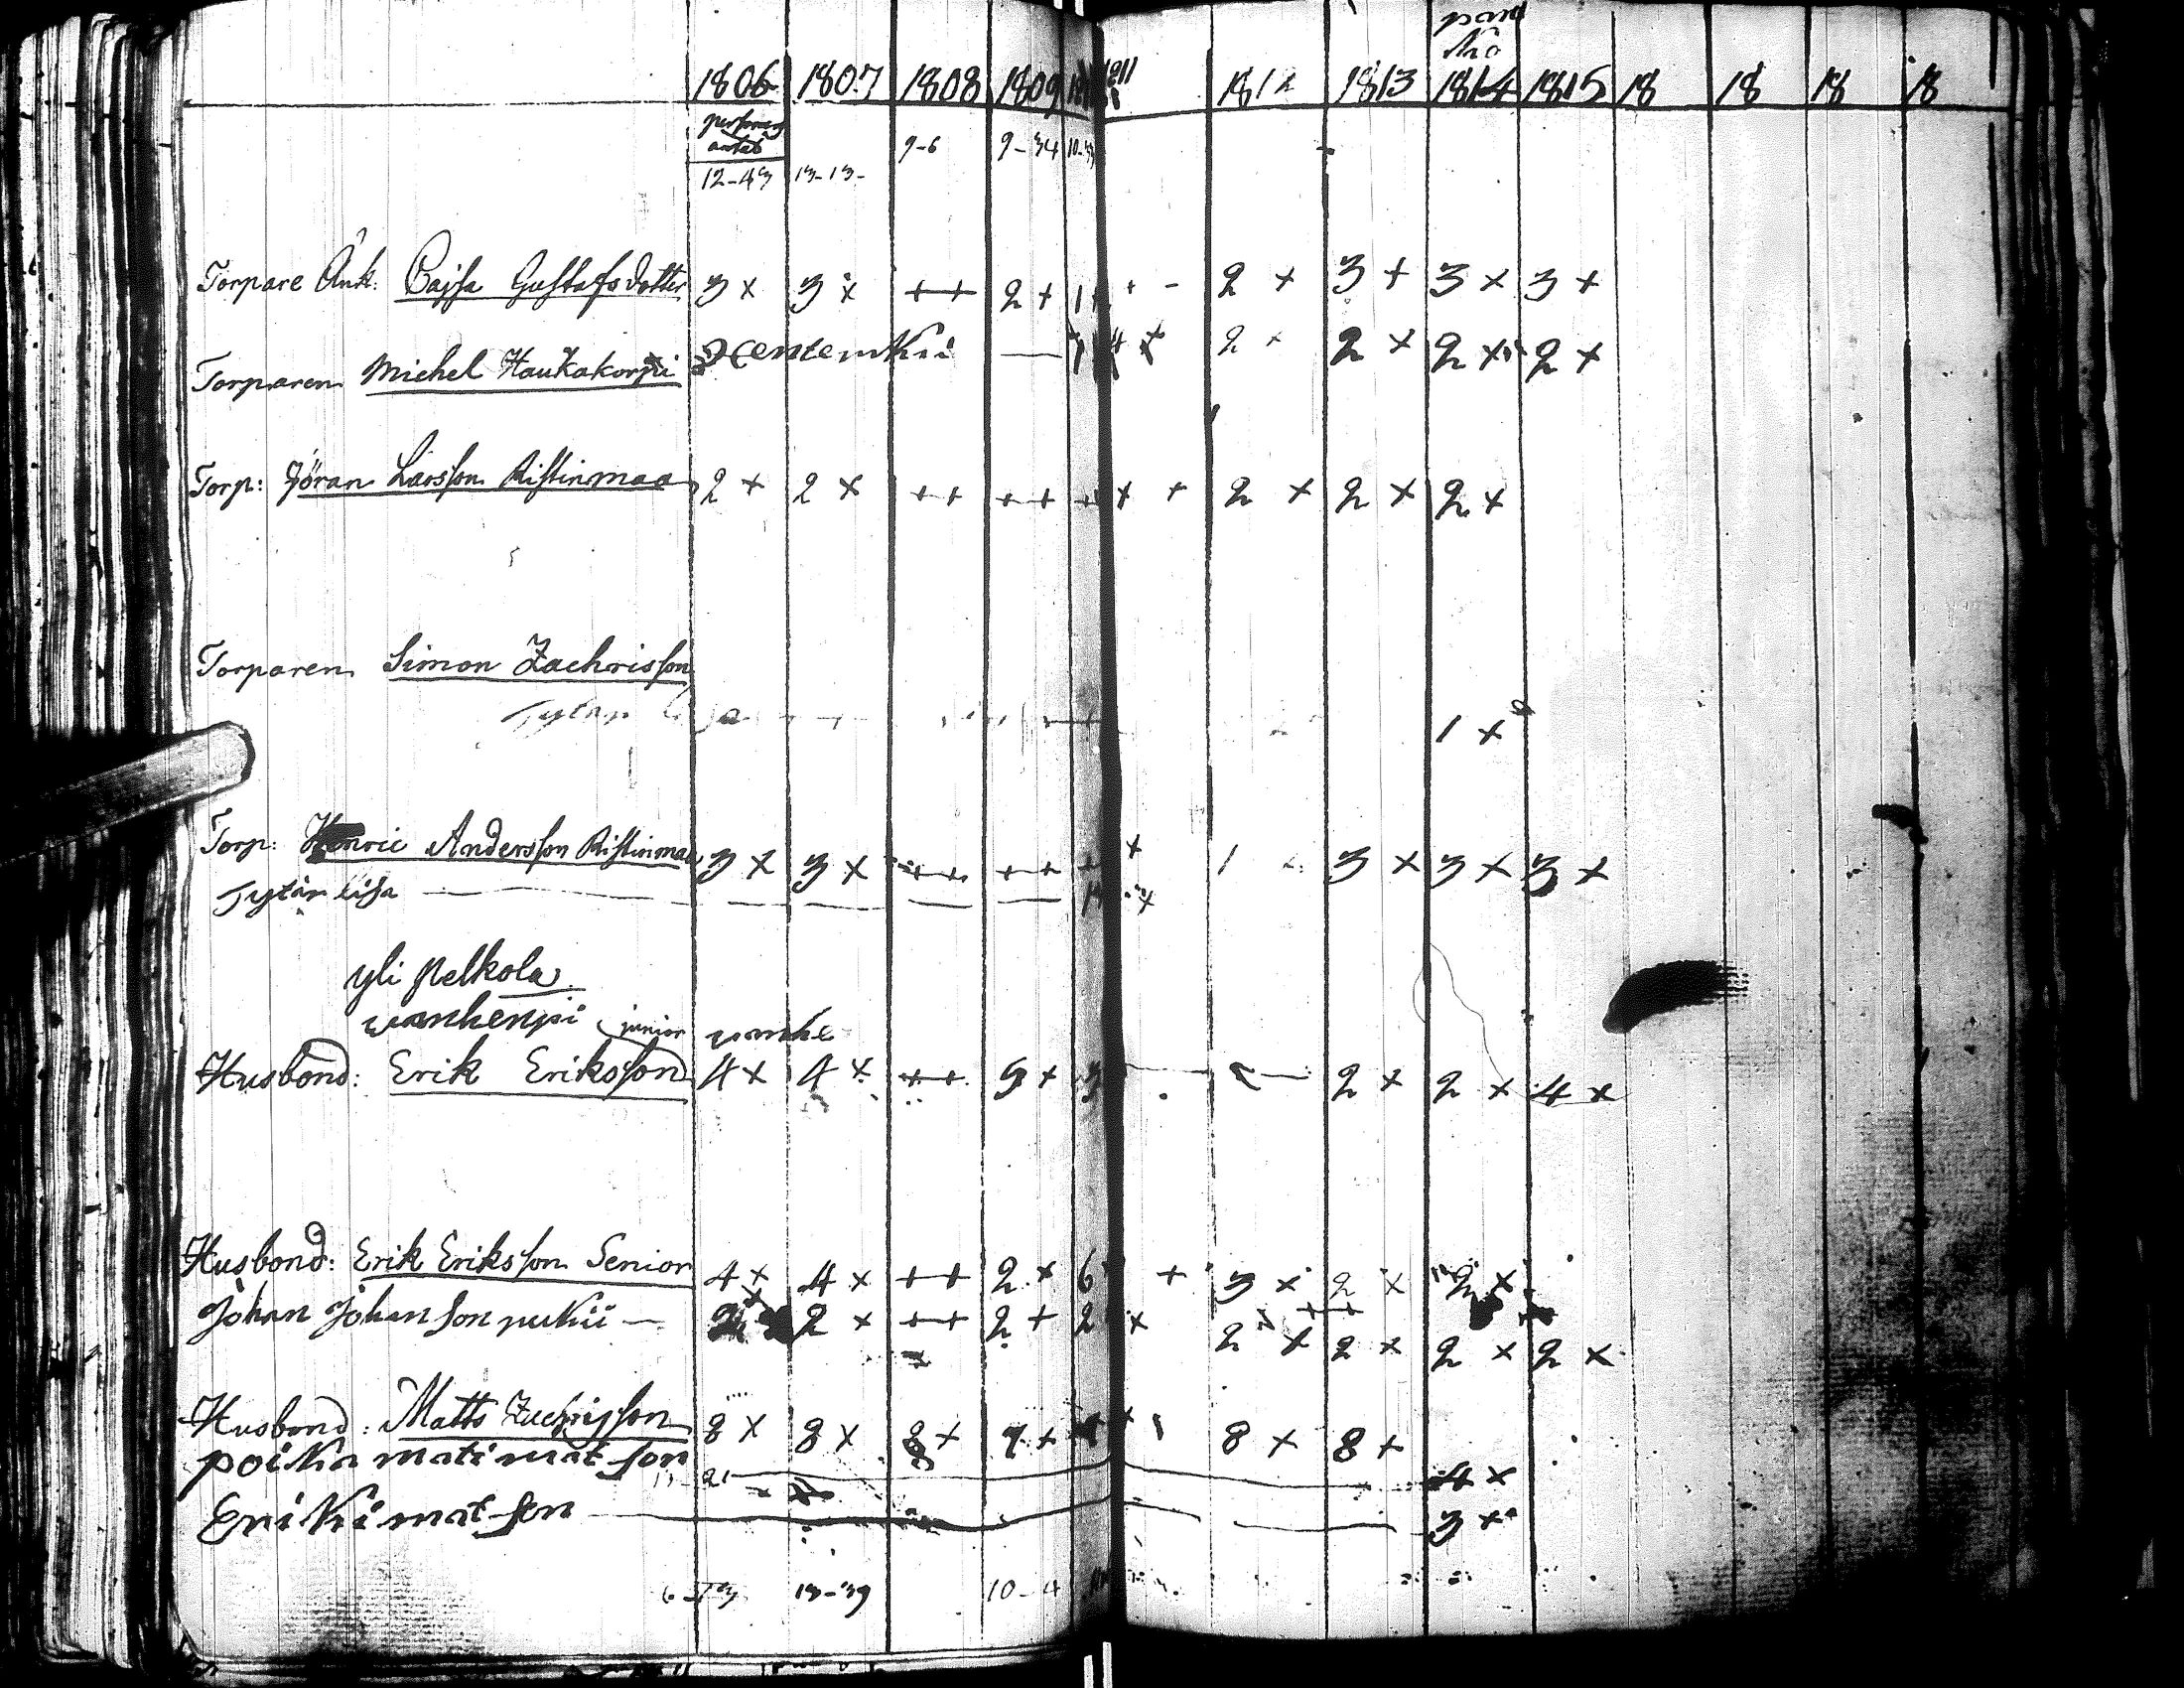 1806 1807 1808 1809 1811 1812 1813 1814 1815 18 18 18 18
12-43 13-13- 9-6 9-34
Torpare Änk: Cajsa Gustafsdotter 3 x 3 x ++ 2 + 1 + 2 + 3 + 3 x 3 +
Torparen Michel Haukakorpi 2 x 2 x 2 x 2 x
Torp: Jöran Larsson Ristinmaa 2 + 2 x ++ ++ + + 2 x 2 x 2 x
Torparen Simon Zachrisson
Tytär 1 x
Torp: Henric Andersson Ristinmaa 3 x 3 x ++ ++ + 1 3 x 3 x 3 x
Tytär lisa
yli pelkola
wanhenpi junior wanhe
Husbond: Erik Eriksson 4 x 4 x ++ 2 x 2 x 4 x
Husbond: Erik Eriksson Senior 4 x 4 x ++ 2 x 6 + 3 x 2 x 2 x
Johan Johan son pukii 2 x ++ 2 + 2 x 2 x 2 x 2 x 2 x
Husbond: Matts Zachrisson 8 x 8 x 8 x 8 + 8 +
poika mati mat son 4 x
Eriki mat son 3 x
13-39 10-4